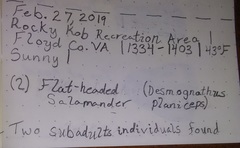 Feb. 27, 2019
Rocky Kob Recreation Area |
Floyd Co. VA | 1334-1403 | 43°F
Sunny |
(2) Flat-headed (Desmognathus
Salamander planiceps)
- Two subadults individuals found